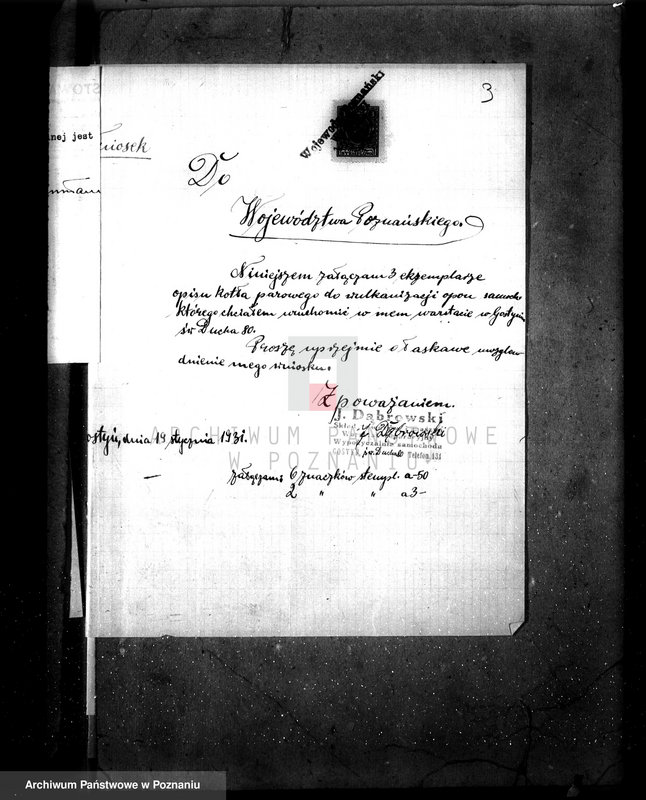 3
Wojewo
nański
nej jest
niosek
Do
Województwa Poznańskiego.
Niniejszem załączam 3 ekzemplarze
opisu kotła parowego do wulkanizacji opon samoch
którego chciałem uruchomić w mem warstacie w Gostyniu
św Ducha 80.
Proszę uprzejmie o łaskawe uwzglę-
dnienie mego wniosku.
Z poważaniem.
J. Dąbrowski
J. Dąbrowski
Wypożyczalnia samochodu
św. Ducha 80 Telefon 131
ostyń, dnia 19 stycznia 1931.
załączam: 6 znaczków stempl. a -50
2 " " a 3-
ARCHIWUM PAŃSTWOWE
W POZNANIU
Archiwum Państwowe w Poznaniu